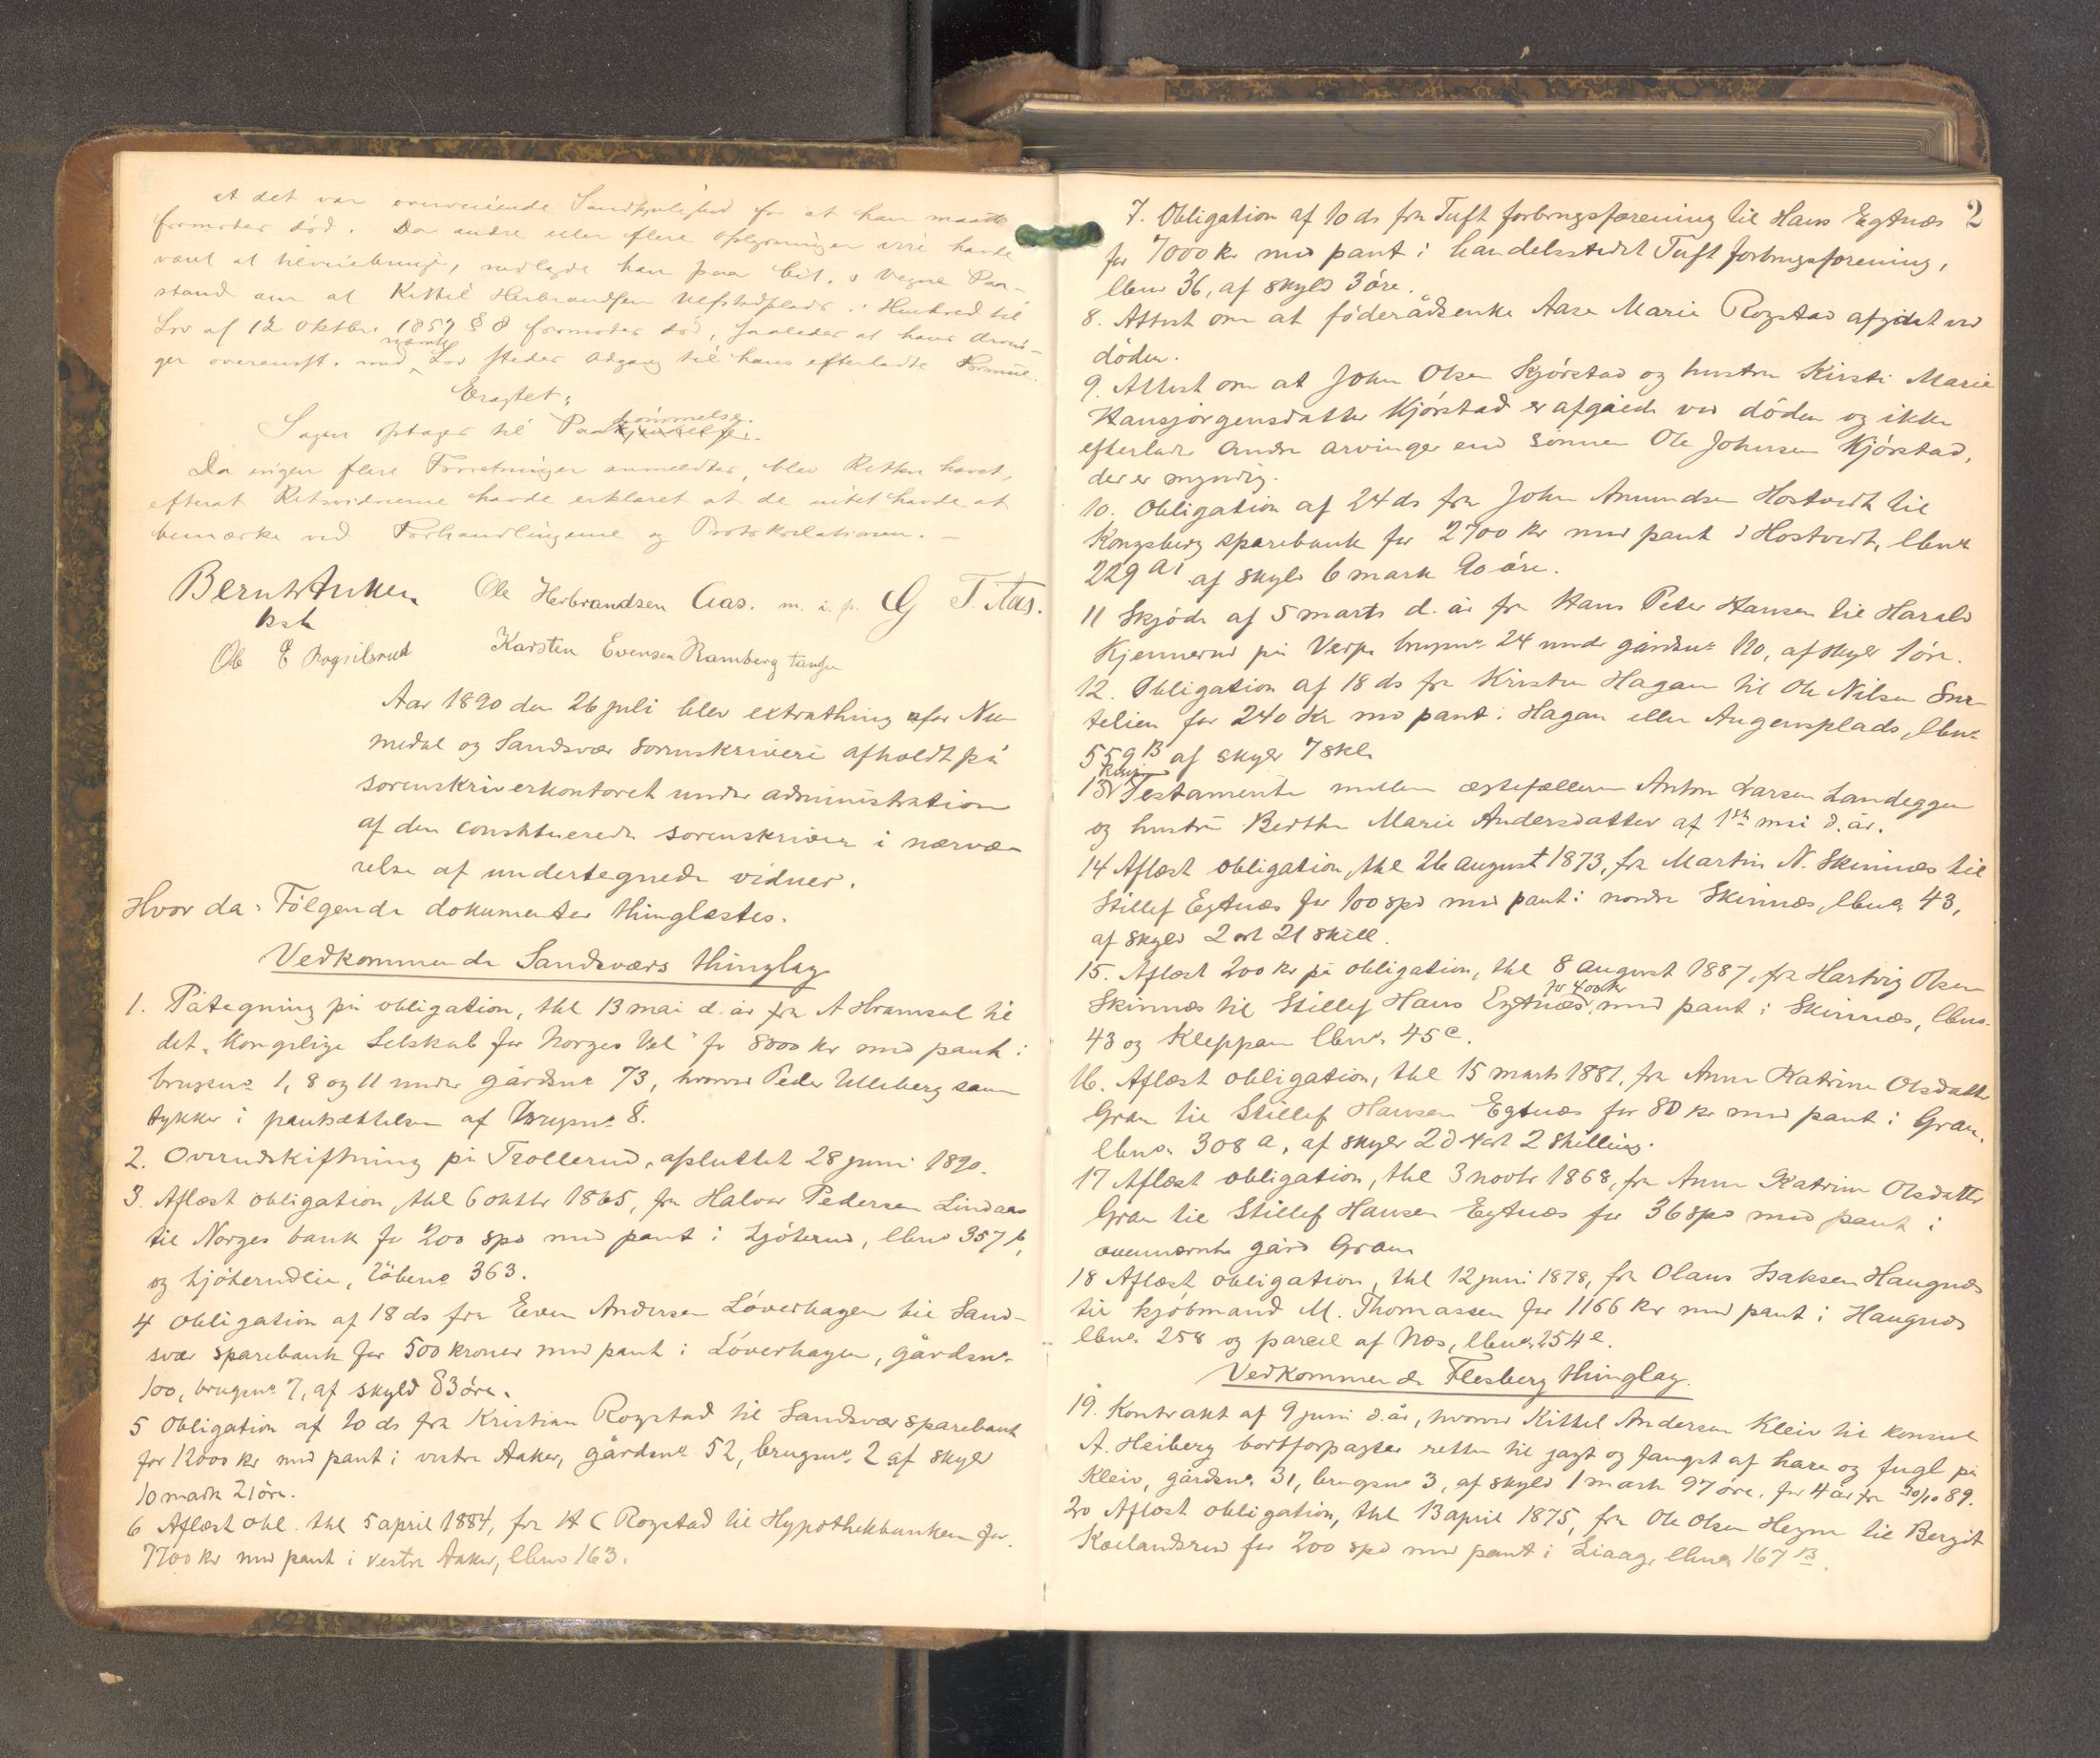 at det var overveiende Sandsynlighed for at han maatte
formodes død. Da andre eller flere Oplysninger ikke havde
været at tilveiebringe, nedlagde han paa Cit.s Vegne Paa-
stand om at Kittil Herbrandsen Ulfstadplads i Henhold til
Lov af 12 Oktbr. 1857 § 8 formodes død, saaledes at hans Arvin-
ger overensst. med nævnte Lov stedes Adgang til hans efterladte Formue.
Eragtet:
Sagen optages til Paakjendelse. kjennelse.
Da ingen flere Forretninger anmeldtes, blev Retten hævet,
efterat Retsvidnerne havde erklæret at de intet havde at
bemærke ved Forhandlingerne og Protokollationen. –
Bernt Anker Ole Herbrandsen Aas. m. i. p. G T. Aas.
kst
Ole E Rogsilsrud Karsten Evensen Ramberg
Aar 1890 den 26 juli blev extrathing for Nu-
medal og Sandsvær sorenskriveri afholdt på
sorenskriverkontoret under administration
af den constituerede sorenskriver i nærvæ-
relse af undertegnede vidner.
Hvor da: Følgende dokumenter thinglæstes.
Vedkommende Sandsværs thinglag
1. Påtegning på obligation, thl 13 mai d. år fra A Hramsal til
det "Kongelige Selskab for Norges Vel" for 8000 kr med pant i
brugsno 1, 8 og 11 under gårdsno 73, hvorved Peder Ulleberg sam-
tykker i pantsættelsen af brugsno 8.
2. Overudskiftning på Trollerud, afsluttet 28 juni 1890.
3. Aflæst obligation, thl 6 oktbr 1865, fra Halvor Pedersen Lindaas
til Norges bank for 200 spd med pant i Ljøterud, lbno 357 b,
og Ljøterudlie, løbeno 363.
4 Obligation af 18 ds fra Even Andersen Løverhagen til Sand-
svær sparebank for 500 kroner med pant i Løverhagen, gårdsno
100, brugsno 7, af skyld 83 øre.
5 Obligation af 10 ds fra Kristian Rogstad til Sandsvær sparebank
for 12000 kr med pant i vestre Aaker, gårdsno 52, brugsno 2 af skyld
10 mark 21 øre.
6 Aflæst obl. thl 5 april 1884, fra H C Rogstad til Hypothekbanken for
7700 kr med pant i vestre Aaker, lbno 163.
2
7. Obligation af 10 ds fra Tuft forbrugsforening til Hans Egtnæs
for 7000 kr med pant i handelsstedet Tuft forbrugsforening,
lbno 36, af skyld 3 øre.
8. Attest om at føderådsenke Aase Marie Rogstad afgået ved
døden.
9. Attest om at John Olsen Kjørstad og hustru Kirsti Marie
Hansjørgensdatter Kjørstad er afgåede ved døden og ikke
efterlader andre arvinger end sønnen Ole Johnsen Kjørstad,
der er myndig.
10. Obligation af 24 ds fra John Amundsen Hostvedt til
Kongsberg sparebank for 2700 kr med pant i Hostvedt, lbno
229 a1 af skyld 6 mark 90 øre.
11 Skjøde af 5 marts d. år fra Hans Peter Hansen til Harald
Kjennerud på Verpe brugsno 24 under gårdsno 120, af skyld 1 øre.
12. Obligation af 18 ds fra Kristen Hagan til Ole Nilsen Sne-
telien for 240 kr med pant i Hagan eller Augensplads, lbno
559 B af skyld 7 skl.
13 Testamente mellem ægtefællerne Anton Larsen Landeggen
og hustru Berthe Marie Andersdatter af 1st mai d. år.
14 Aflæst obligation, thl 26 august 1873, fra Martin N. Skinnæs til
Stillef Egtnæs for 100 spd med pant i nordre Skinnæs, lbno 43,
af skyld 2 ort 21 skill.
15. Aflæst 200 kr på obligation, thl 8 august 1887, fra Hartvig Olsen
Skinnæs til Stillef Hans Egtnæs for 400 kr med pant i Skinnæs, lbno
43 og Kleppan lbno 45 c.
16. Aflæst obligation, thl 15 marts 1881, fra Anne Katrine Olsdatter
Gran til Stillef Hansen Egtnæs for 80 kr med pant i Gran,
lbno 308 a, af skyld 2 d 4 ort 2 skilling.
17 Aflæst obligation, thl 3 novbr 1868, fra Anne Katrine Olsdatter
Gran til Stillef Hansen Egtnæs for 36 spd med pant i
ovennævnte gård Gran
18 Aflæst obligation, thl 12 juni 1878, fra Olaus Isaksen Haugnæs
til kjøbmand M. Thomassen for 1166 kr med pant i Haugnæs
lbno 258 og parcel af Næs, lbno 254 e.
Vedkommende Flesberg thinglag.
19. Kontrakt af 9 juni d. år, hvorved Kittel Andersen Kleiv til konsul
A. Heiberg bortforpagter retten til jagt og fangst af hare og fugl på
Kleiv, gårdsno 31, brugsno 3, af skyld 1 mark 97 øre, for 4 år fra 10/10 89.
20 Aflæst obligation, thl 13 april 1875, fra Ole Olsen Hegna til Bergit
Kaslandsrud for 200 spd med pant i Liaag, lbno 167 B.